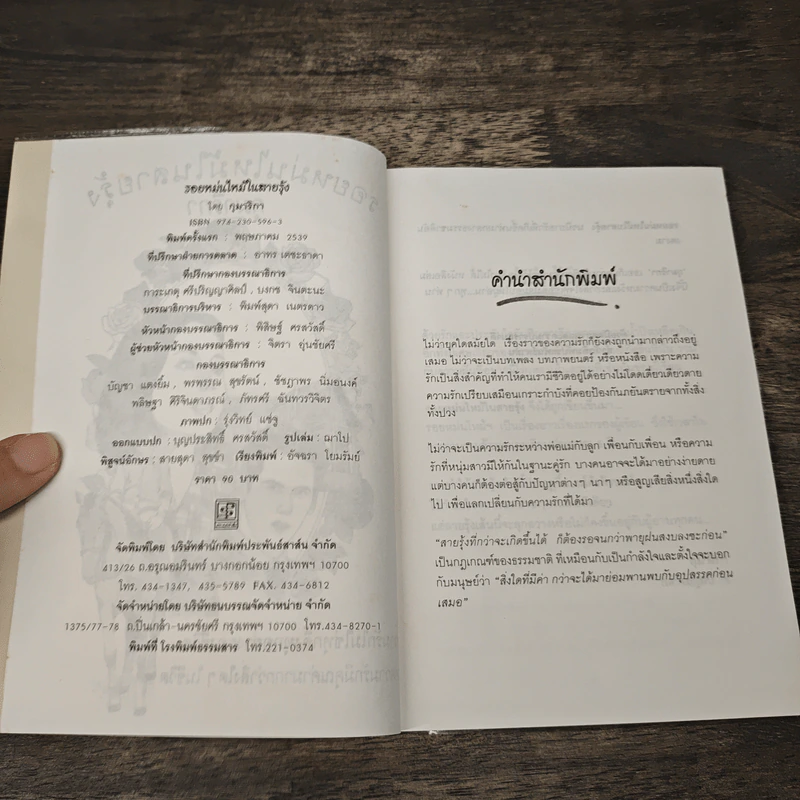 รอยหม่นไหมีในสายรุ้ง
โดย กุมาริกา
ISBN 974-230-596-3
พิมพ์ครั้งแรก : พฤษภาคม 2539
ที่ปรึกษาฝ่ายการตลาด : อาทร เตชะธาดา
ที่ปรึกษากองบรรณาธิการ
การะเกตุ ศรีปริญญาศิลป์ , บงกช จินตะนะ
บรรณาธิการบริหาร : พิมพ์สุดา เนตรดาว
หัวหน้ากองบรรณาธิการ : พิสิษฐ์ ศรสวัสดิ์
ผู้ช่วยหัวหน้ากองบรรณาธิการ : จิตรา กุ่นชัยศรี
กองบรรณาธิการ
บัญชา แดงยิ้ม , พรพรรณ สุขรัตน์ , ชัชฎาพร นิ่มอนงค์
พอิษฐา ศิริจินดาภรณ์ , ภัทรศรี ฉันทวรวิจิตร
ภาพปก : รุ่งวิทย์ แซ่จู
ออกแบบปก : บุญประสิทธิ์ ศรสวัสดิ์ รูปเล่ม : ฌาไป
พิสูจน์อักษร : สายสุดา สุขขำ เรียงพิมพ์ : อัจฉรา โยมรัมย์
ราคา 90 บาท
จัดพิมพ์โดย บริษัทสำนักพิมพ์ประพันธ์สาส์น จำกัด
413/26 ถ.อรุณอมรินทร์ บางกอกน้อย กรุงเทพฯ 10700
โทร. 434-1347, 435-5789 FAX. 434-6812
จัดจำหน่ายโดย บริษัทธนบรรณจัดจำหน่าย จำกัด
1375/77-78 ถ.ปิ่นเกล้า-นครชัยศรี กรุงเทพฯ 10700 โทร.434-8270-1
พิมพ์ที่ โรงพิมพ์ธรรมสาร โทร.221-0374
คำนำสำนักพิมพ์
ไม่ว่ายุคใดสมัยใด เรื่องราวของความรักก็ยังคงถูกนำมากล่าวถึงอยู่
เสมอ ไม่ว่าจะเป็นบทเพลง บทภาพยนตร์ หรือหนังสือ เพราะความ
รักเป็นสิ่งสำคัญที่ทำให้คนเรามีชีวิตอยู่ได้อย่างไม่โดดเดี่ยวเดียวดาย
ความรักเปรียบเสมือนเกราะกำบังที่คอยป้องกันภยันตรายจากทั้งสิ่ง
ทั้งปวง
ไม่ว่าจะเป็นความรักระหว่างพ่อแม่กับลูก เพื่อนกับเพื่อน หรือความ
รักที่หนุ่มสาวมีให้กันในฐานะคู่รัก บางคนอาจจะได้มาอย่างง่ายดาย
แต่บางคนก็ต้องต่อสู้กับปัญหาต่างๆ นาๆ หรือสูญเสียสิ่งหนึ่งสิ่งใด
ไป เพื่อแลกเปลี่ยนกับความรักที่ได้มา
"สายรุ้งที่กว่าจะเกิดขึ้นได้ ก็ต้องรอจนกว่าพายุฝนสงบลงซะก่อน"
เป็นกฎเกณฑ์ของธรรมชาติ ที่เหมือนกับเป็นกำลังใจและตั้งใจจะบอก
กับมนุษย์ว่า "สิ่งใดที่มีค่า กว่าจะได้มาย่อมพานพบกับอุปสรรคก่อน
เสมอ"